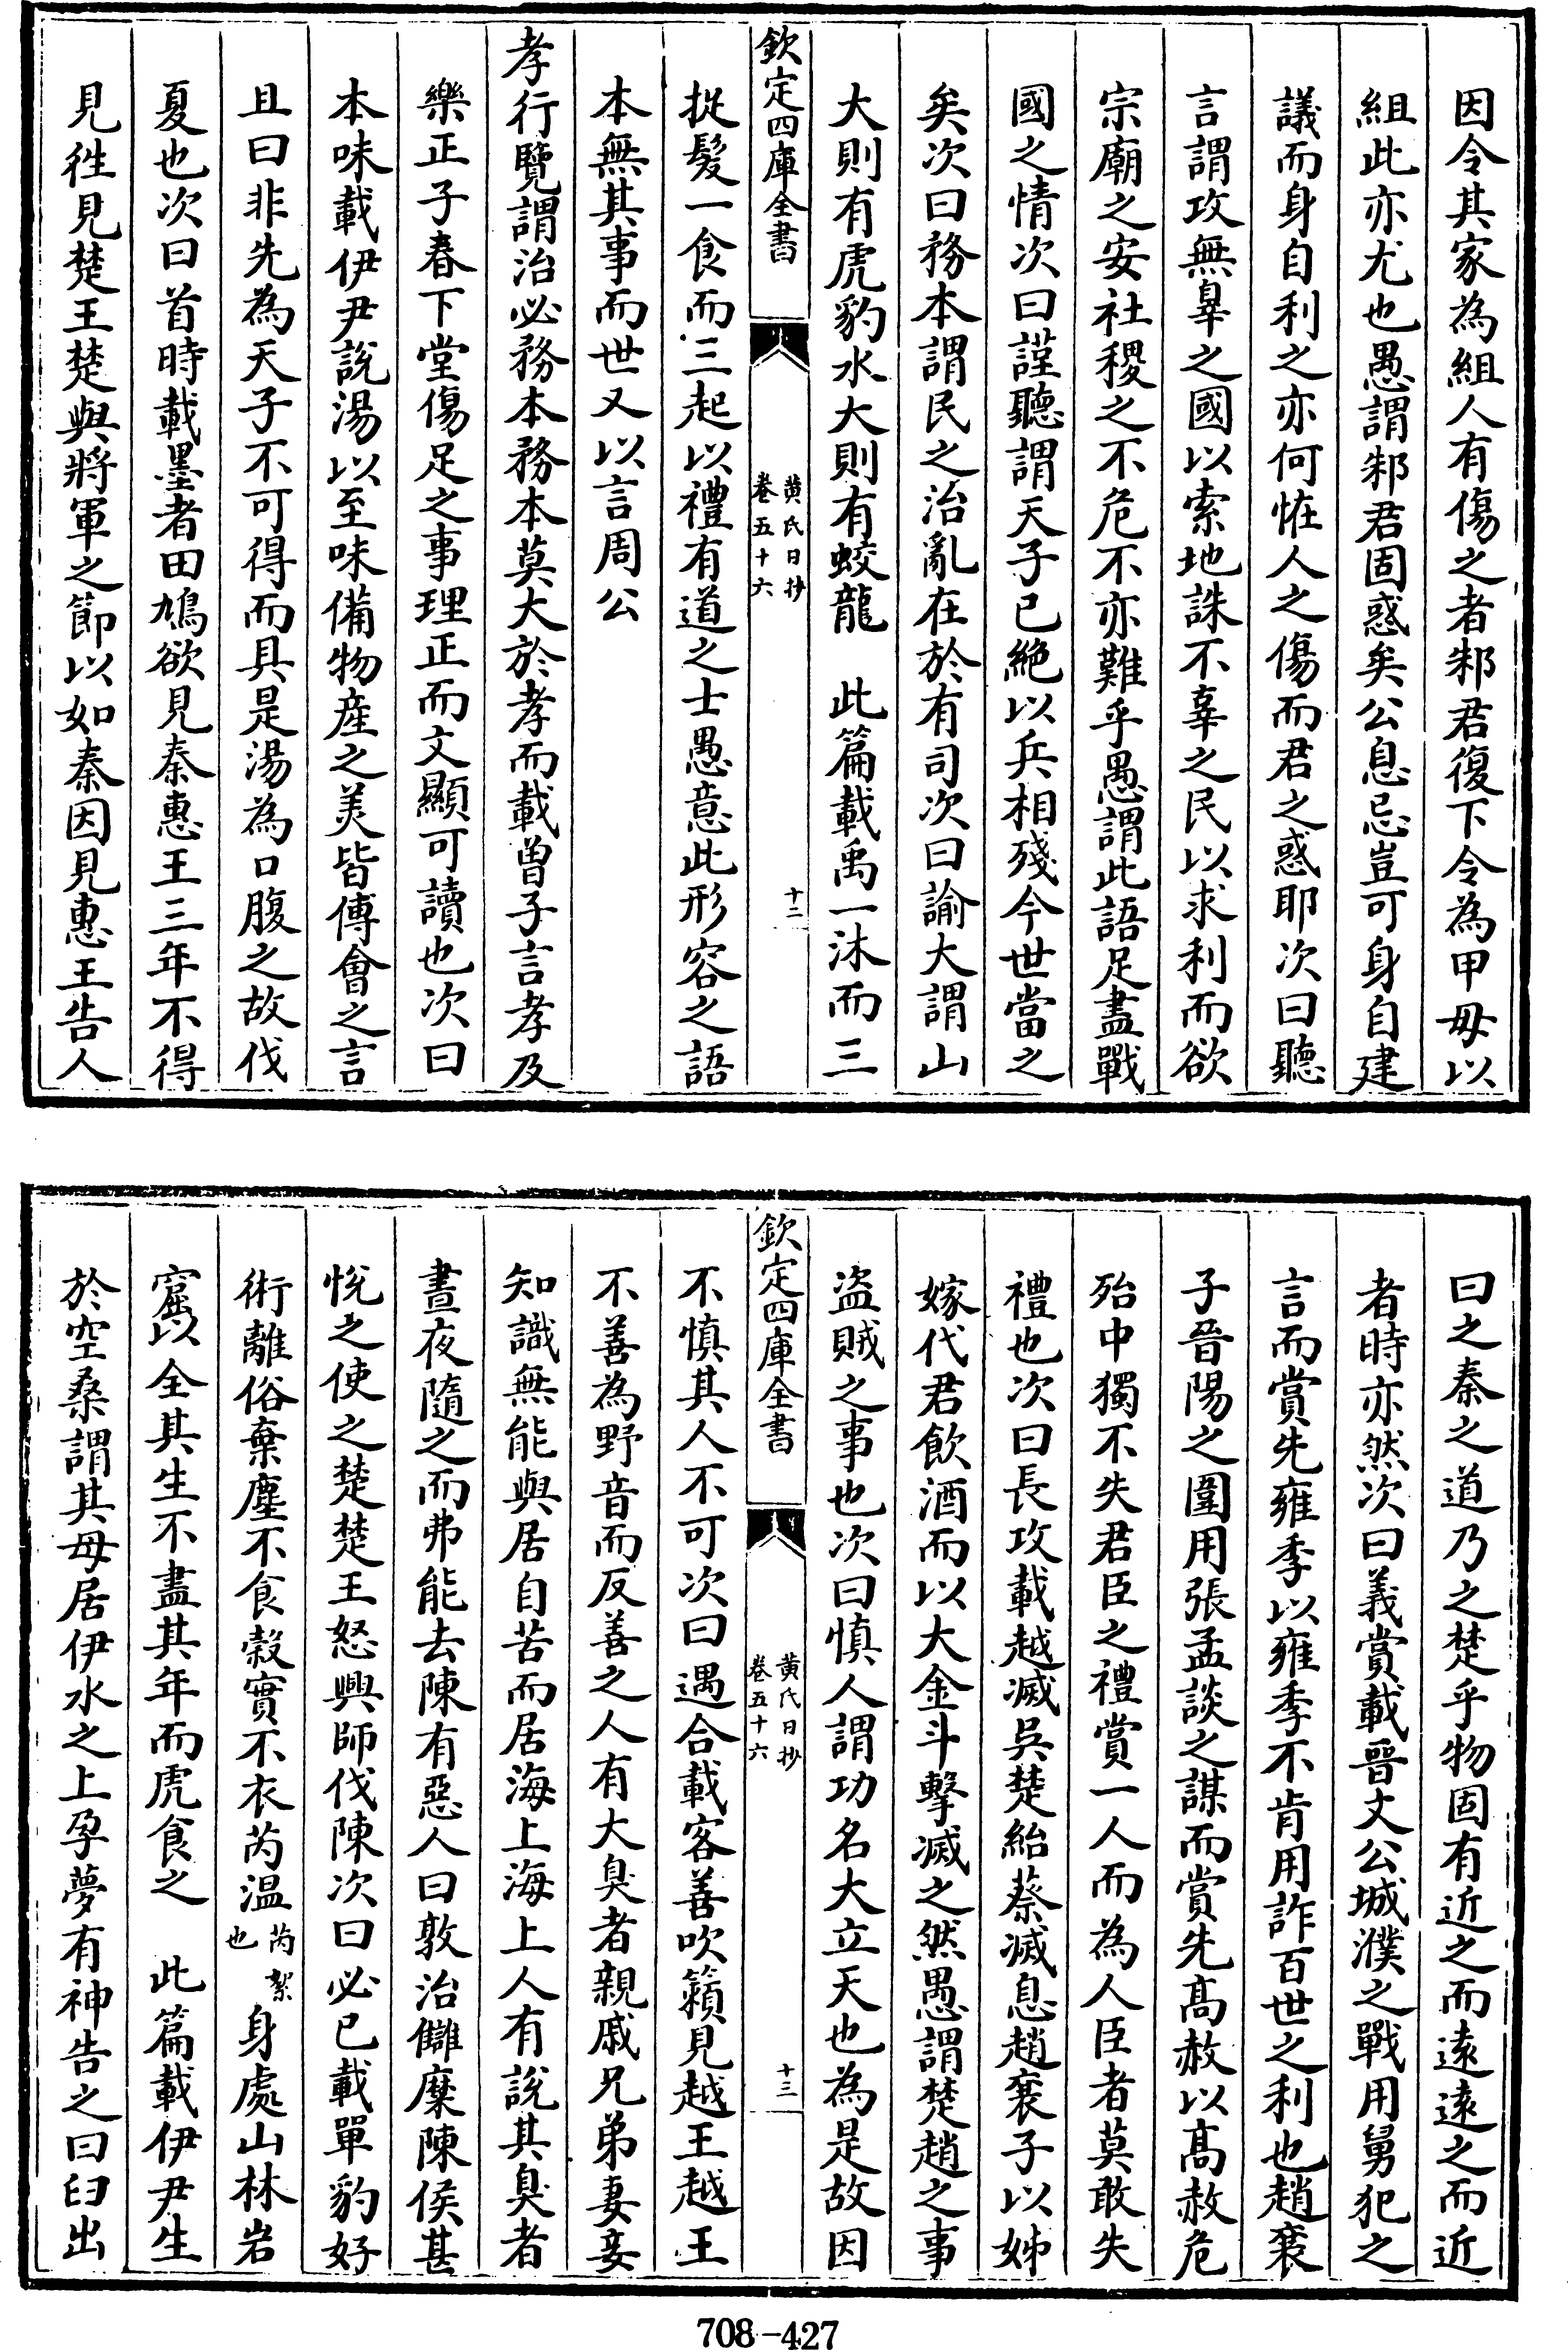 因令其家為組人有傷之者邾君復下令為甲毋以
組此亦尤也愚謂邾君固惑矣公息忌豈可身自建
議而身自利之亦何恠人之傷而君之惑耶次曰聽
言謂攻無辠之國以索地誅不辜之民以求利而欲
宗廟之安社稷之不危不亦難乎愚謂此語足盡戰
國之情次曰謹聽謂天子已絶以兵相殘今世當之
矣次曰務本謂民之治亂在於有司次曰諭大謂山
大則有虎豹水大則有蛟龍　此篇載禹一沐而三
欽定四庫全書
黃氏日抄
卷五十六
十二
捉髪一食而三起以禮有道之士愚意此形容之語
本無其事而世又以言周公
孝行覽謂治必務本務本莫大於孝而載曽子言孝及
樂正子春下堂傷足之事理正而文顯可讀也次曰
本味載伊尹說湯以至味備物産之美皆傅會之言
且曰非先為天子不可得而具是湯為口腹之故伐
夏也次曰首時載墨者田鳩欲見秦惠王三年不得
見徃見楚王楚與將軍之節以如秦因見惠王告人
曰之秦之道乃之楚乎物固有近之而遠遠之而近
者時亦然次曰義賞載晉文公城濮之戰用舅犯之
言而賞先雍季以雍季不肯用詐百世之利也趙襄
子晉陽之圍用張孟談之謀而賞先髙赦以髙赦危
殆中獨不失君臣之禮賞一人而為人臣者莫敢失
禮也次曰長攻載越滅吳楚紿蔡滅息趙襄子以姊
嫁代君飲酒而以大金斗擊滅之然愚謂楚趙之事
盗賊之事也次曰慎人謂功名大立天也為是故因
欽定四庫全書
黃氏日抄
卷五十六
十三
不慎其人不可次曰遇合載客善吹籟見越王越王
不善為野音而反善之人有大臭者親戚兄弟妻妾
知識無能與居自苦而居海上海上人有說其臭者
晝夜隨之而弗能去陳有惡人曰敦洽讎糜陳侯甚
悅之使之楚楚王怒興師伐陳次曰必已載單豹好
術離俗棄塵不食榖實不衣芮温芮絮也身處山林岩
窟以全其生不盡其年而虎食之　此篇載伊尹生
於空桑謂其母居伊水之上孕夢有神告之曰臼出
708-427